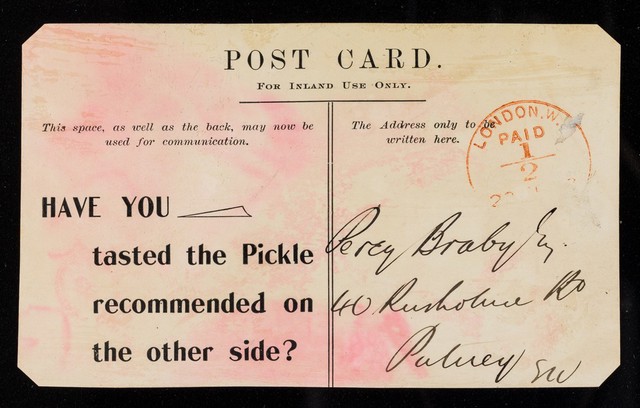 POST CARD.
FOR INLAND USE ONLY.
This space, as well as the back, may now be
used for communication.
The Address only to be
written here.
LONDON. W.
PAID
1
2
HAVE YOU
tasted the Pickle
recommended on
the other side?
Percy Braby Esq.
40 Rusholme Rd
Putney SW